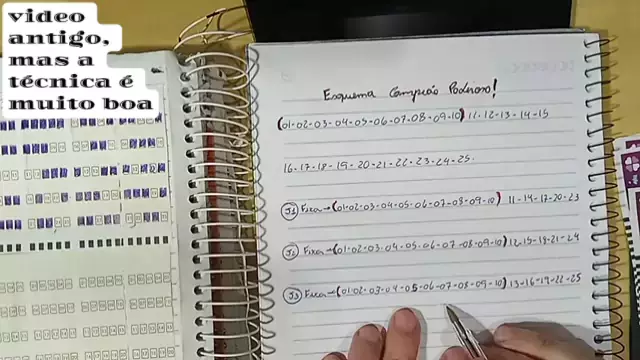 video
antigo,
mas a
técnica é
muito boa
Esquema Campeão Poderoso!
(01-02-03-04-05-06-07-08-09-10) 11-12-13-14-15
16-17-18-19-20-21-22-23-24-25.
J1 Fixa→(01-02-03-04-05-06-07-08-09-10) 11-14-17-20-23
J2 Fixa→(01-02-03-04-05-06-07-08-09-10) 12-15-18-21-24
J3 Fixa→(01-02-03-04-05-06-07-08-09-10) 13-16-19-22-25